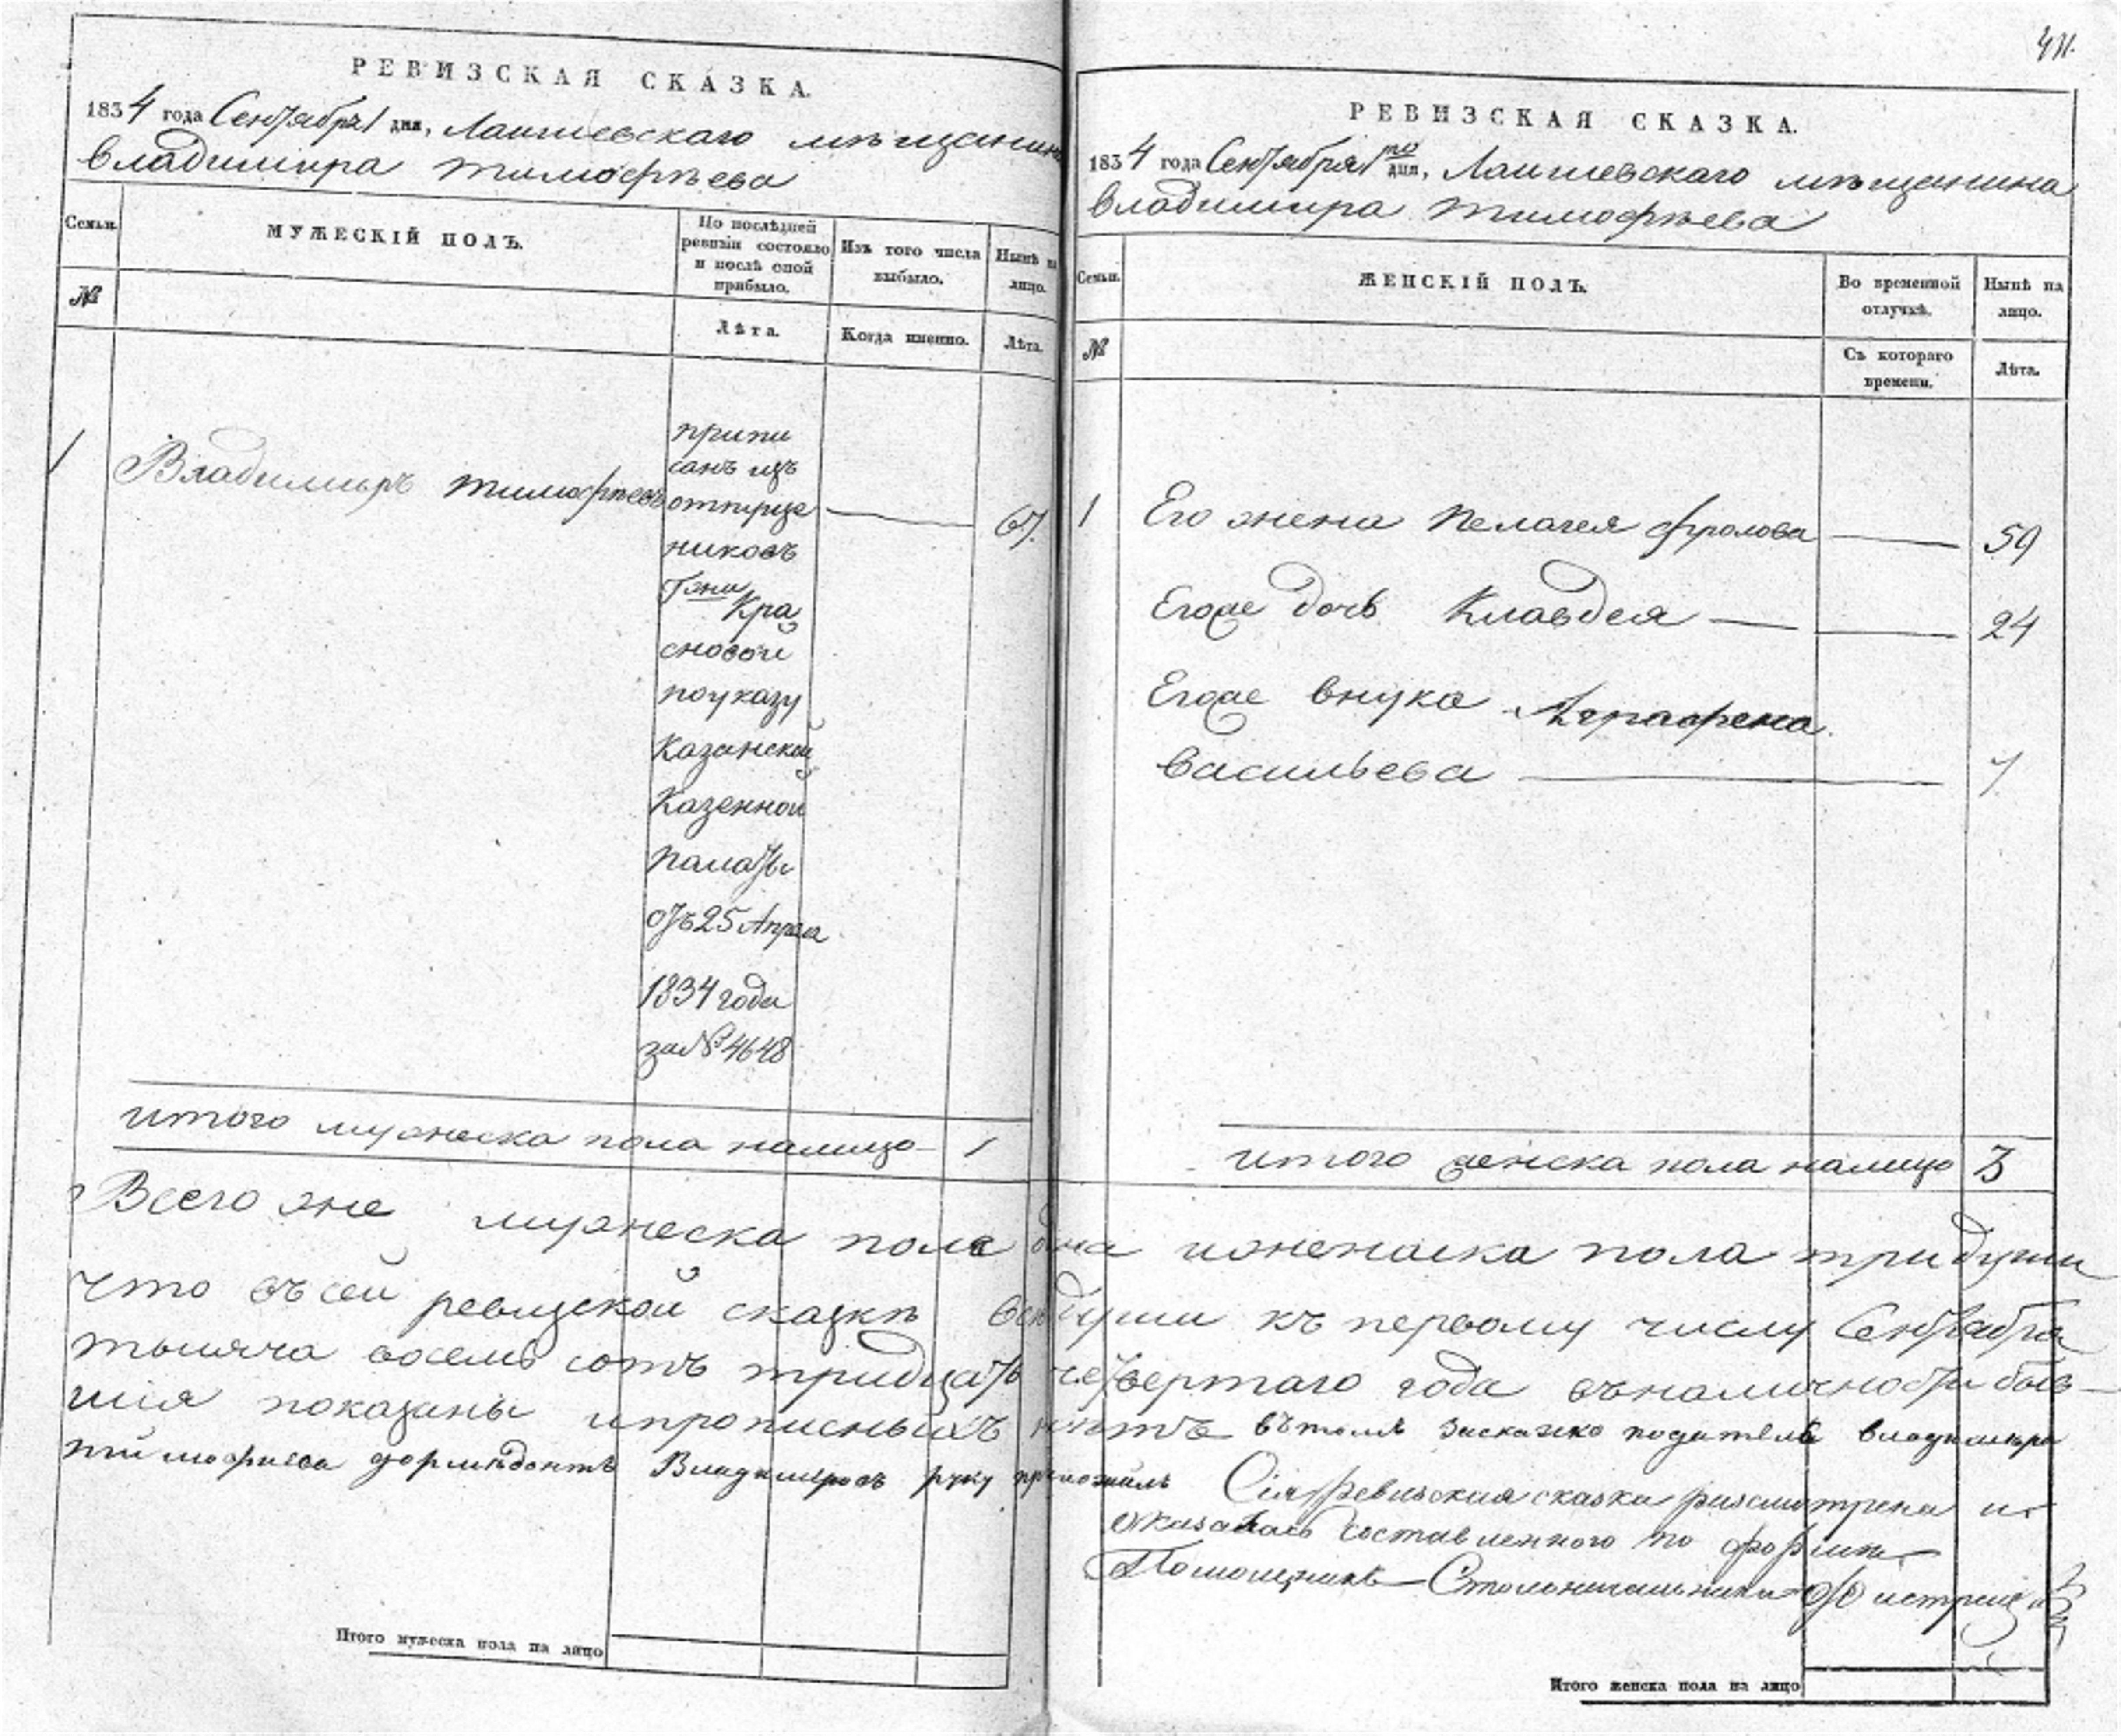 РЕВИЗСКАЯ СКАЗКА.
1834 года Сентября 1 дня, Лаишевскаго мѣщанина
владимира тимофѣева
Семьи. МУЖЕСКІЙ ПОЛЪ. По послѣдней ревизіи состояло и послѣ оной прибыло. Изъ того числа выбыло. Нынѣ на лицо.
№ Лѣта. Когда именно. Лѣта.
1 Владимиръ тимофѣевъ 67.
припи
санъ изъ
отпуще
никовъ
Гжи Кра
сновой
по указу
Казанской
Казенной
палаты
отъ 25 Апреля
1834 года
за № 4648
итого мужеска пола налицо 1
41.
РЕВИЗСКАЯ СКАЗКА.
1834 года Сентября 1го дня, Лаишевскаго мѣщанина
владимира тимофѣева
Семьи. ЖЕНСКІЙ ПОЛЪ. Во временной отлучкѣ. Нынѣ на лицо.
№ Съ котораго времени. Лѣта.
1 Его жена Пелагея фролова 59
Егоже дочь Клавдея 24
Егоже внука Аграфена
Васильева 7
итого женска пола налицо 3
Всего же мужеска пола одна иженска пола три души
что въ сей ревизской сказкѣ всѣ души къ первому числу Сентября
тысяча восемь сотъ тридцать четвертаго года въ наличности быв-
шия показаны ипрописныхъ нѣтъ въ томъ Заскаско податель владимера
тимофиева дормидонтъ Владимеровъ руку приложилъ
Сія Ревизская сказка разсмотрена и
оказалась составленного по форме
Помощникъ Столоначальника
Итого мужеска пола на лицо
Итого женска пола на лицо